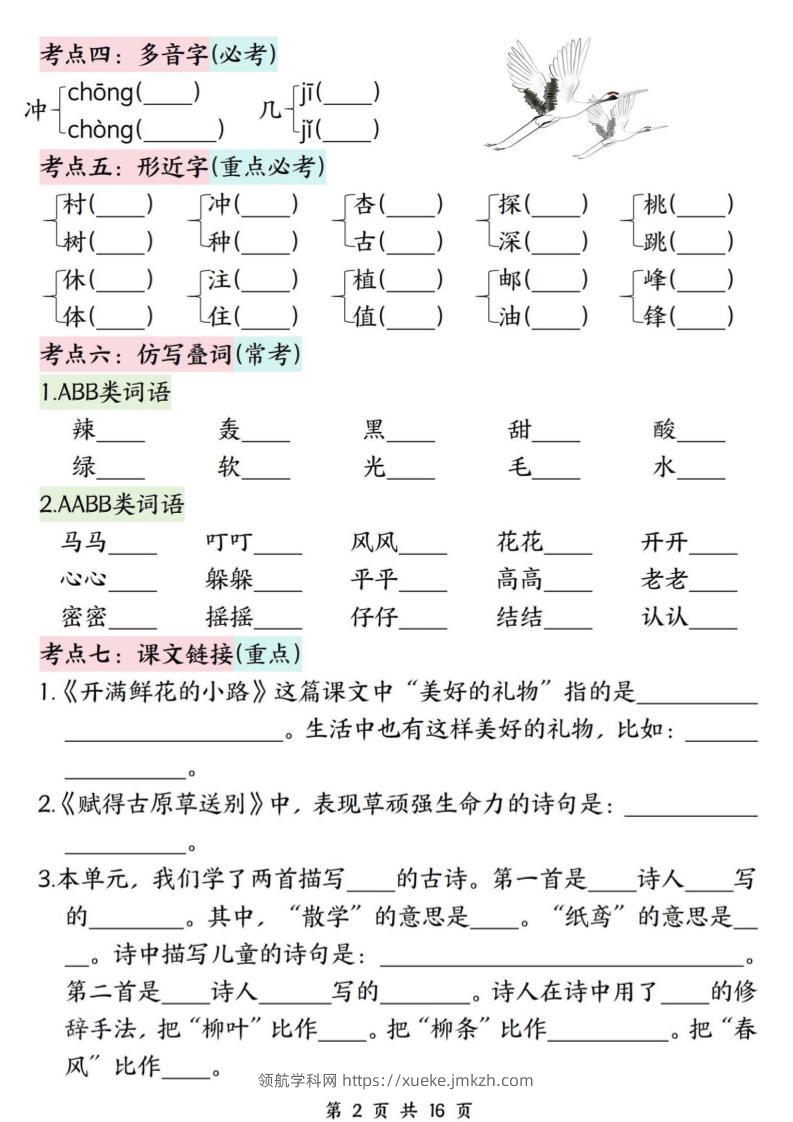 考点四：多音字(必考)
冲 chōng(____) 几 jī(____)
chòng(______) jǐ(____)
考点五：形近字(重点必考)
村(____) 冲(____) 杏(____) 探(____) 桃(____)
树(____) 种(____) 古(____) 深(____) 跳(____)
休(____) 注(____) 植(____) 邮(____) 峰(____)
体(____) 住(____) 值(____) 油(____) 锋(____)
考点六：仿写叠词(常考)
1.ABB类词语
辣____ 轰____ 黑____ 甜____ 酸____
绿____ 软____ 光____ 毛____ 水____
2.AABB类词语
马马____ 叮叮____ 风风____ 花花____ 开开____
心心____ 躲躲____ 平平____ 高高____ 老老____
密密____ 摇摇____ 仔仔____ 结结____ 认认____
考点七：课文链接(重点)
1.《开满鲜花的小路》这篇课文中“美好的礼物”指的是__________
__________________。生活中也有这样美好的礼物，比如：______
__________。
2.《赋得古原草送别》中，表现草顽强生命力的诗句是：___________
__________。
3.本单元，我们学了两首描写____的古诗。第一首是____诗人____写
的________。其中，“散学”的意思是____。“纸鸢”的意思是__
__。诗中描写儿童的诗句是：______________________________。
第二首是____诗人______写的________。诗人在诗中用了____的修
辞手法，把“柳叶”比作____。把“柳条”比作__________。把“春
风”比作____。
领航学科网 https://xueke.jmkzh.com
第 2 页 共 16 页